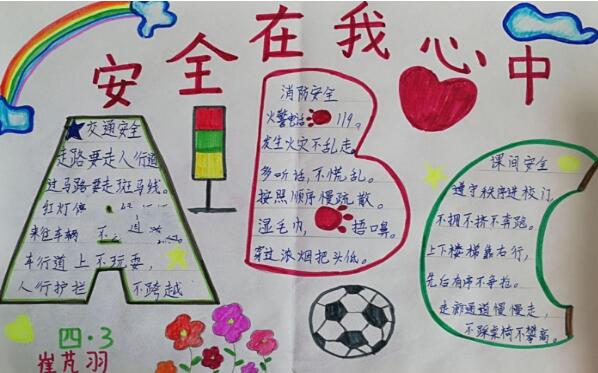 安全在我心中
交通安全
走路要走人行道
过马路要走斑马线。
红灯停
来往车辆 不
车行道上不玩耍，
人行护拦 不跨越
四·3
崔芃羽
消防安全
火警电话 119。
发生火灾不乱走。
多听话，不慌乱。
按照顺序慢疏散。
湿毛巾， 捂口鼻。
穿过浓烟把头低。
课间安全
遵守秩序进校门，
不拥不挤不奔跑。
上下楼梯靠右行，
先后有序不争抢。
走廊通道慢慢走，
不踩桌椅不攀高。